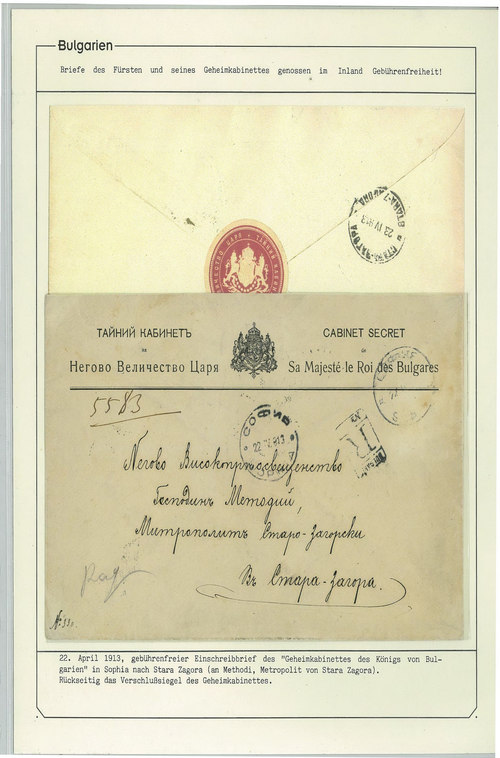 Bulgarien
Briefe des Fürsten und seines Geheimkabinettes genossen im Inland Gebührenfreiheit!
СТАРА-ЗАГОРА
23 IV 913
STARA-ZAGORA
ТАЙНИЙ КАБИНЕТЪ
на
Негово Величество Царя
CABINET SECRET
de
Sa Majesté le Roi des Bulgares
5583
СОФИЯ
22 IV 913
R
Негово Високопреосвященство
Господинъ Методий,
Митрополитъ Старо-Загорски
Въ Стара-Загора.
22. April 1913, gebührenfreier Einschreibbrief des "Geheimkabinettes des Königs von Bul-
garien" in Sophia nach Stara Zagora (an Methodi, Metropolit von Stara Zagora).
Rückseitig das Verschlußsiegel des Geheimkabinettes.